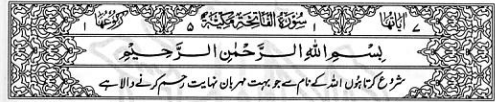 اٰیَاتُهَا ۷ سُوْرَةُ الْفَاتِحَةِ مَكِّيَّةٌ ۵ رُكُوْعُهَا ۱
بِسْمِ اللّٰهِ الرَّحْمٰنِ الرَّحِيْمِ
شروع کرتا ہوں اللہ کے نام سے جو بہت مہربان نہایت رحم کرنے والا ہے